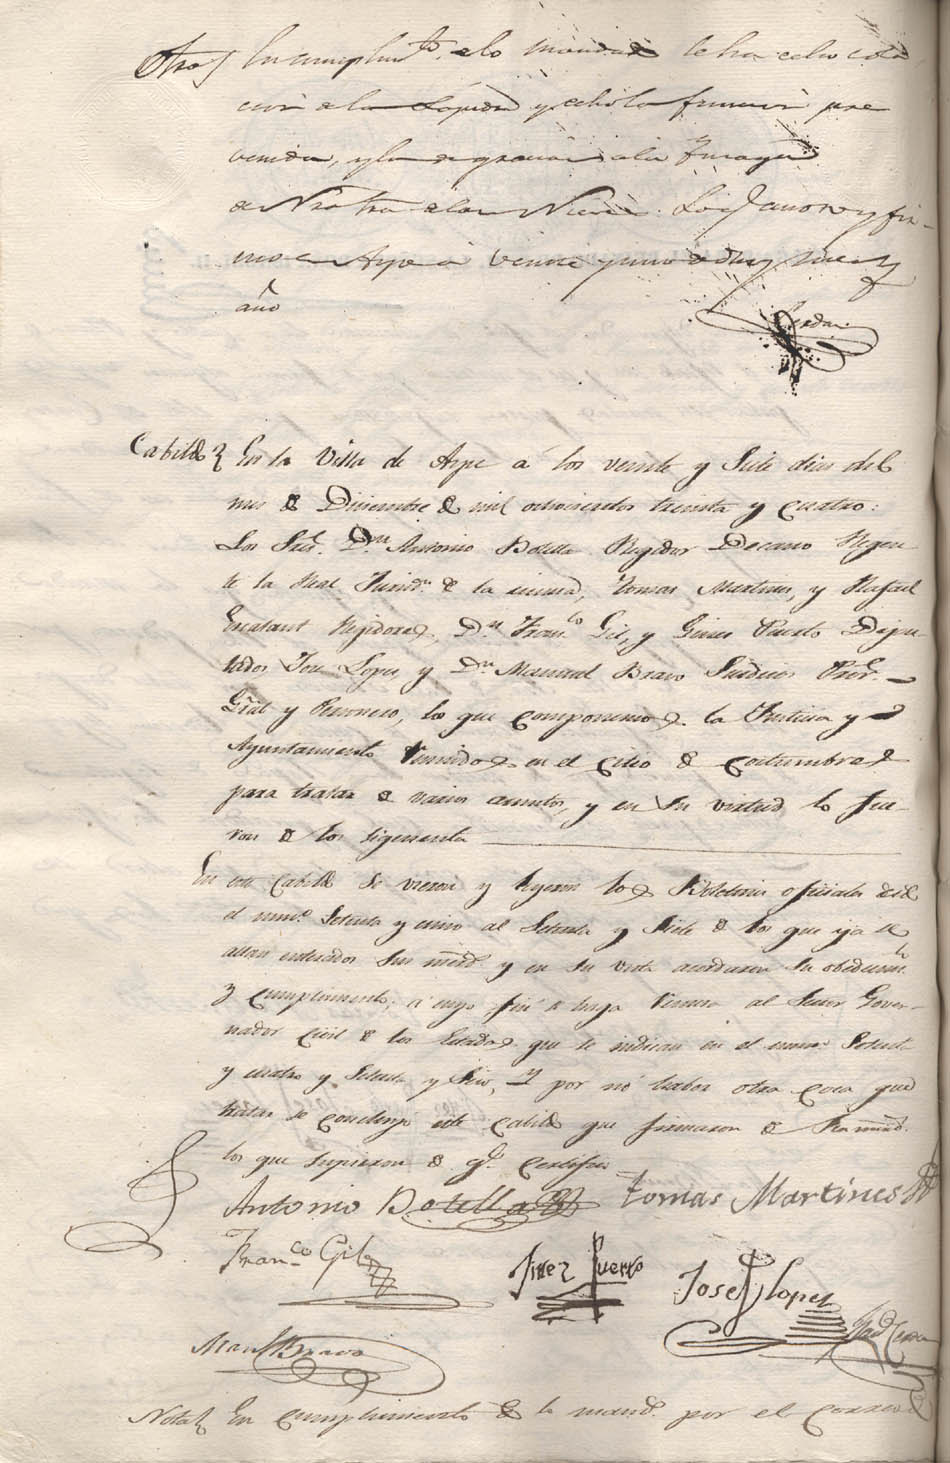 Otra} En cumplim.to a lo mandado se ha echo colo
cion a la Lapida y echo la funcion pre
venida, y la de gracias a la Imagen
de Ntra Sra de las Nieves. Lo q anoto y fir-
mo en Aspe a veinte y uno de dhos mes y
año
Cerdan
Cabildo} En la Villa de Aspe a los veinte y Siete dias del
mes de Diciembre de mil ochocientos treinta y cuatro:
Los Sres. Dn. Antonio Botella Regidor Decano Regen
te la Real Jurisdn. de la misma, Tomas Martines, y Rafael
Regidores, Dn. Franco. Gil, y Gines Puerto Dipu
tados Jose Lopes y Dn. Manuel Bravo Sindicos Pror.
Gral y Personero, los que componemos la Justicia y
Ayuntamiento reunidos en el Citio de Costumbre
para tratar de varios asuntos, y en su virtud lo hicie
ron de los siguientes
En este Cabildo se vieron y leyeron los Boletines oficiales desde
el num.o Setenta y cinco al Setenta y Siete de los que ya se
allan enterados Sus mrds. y en su vista acordaron su obedecim.to
y Cumplimiento; a cuyo fin se haga remesa al Señor Gover-
nador Civil de los Estados que se indican en el num.o Setenta
y cuatro y Setenta y Seis, Y por no haber otra Cosa que
tratar se concluyo este Cabildo que firmaron de Sus mrds.
los que supieron de q.e Certifico
Antonio Botella Tomas Martines
Fran.co Gil Jines Puerto Josef Lopes
Man.l Bravo
Nota} En Cumplimiento de lo mand.o por el Correo